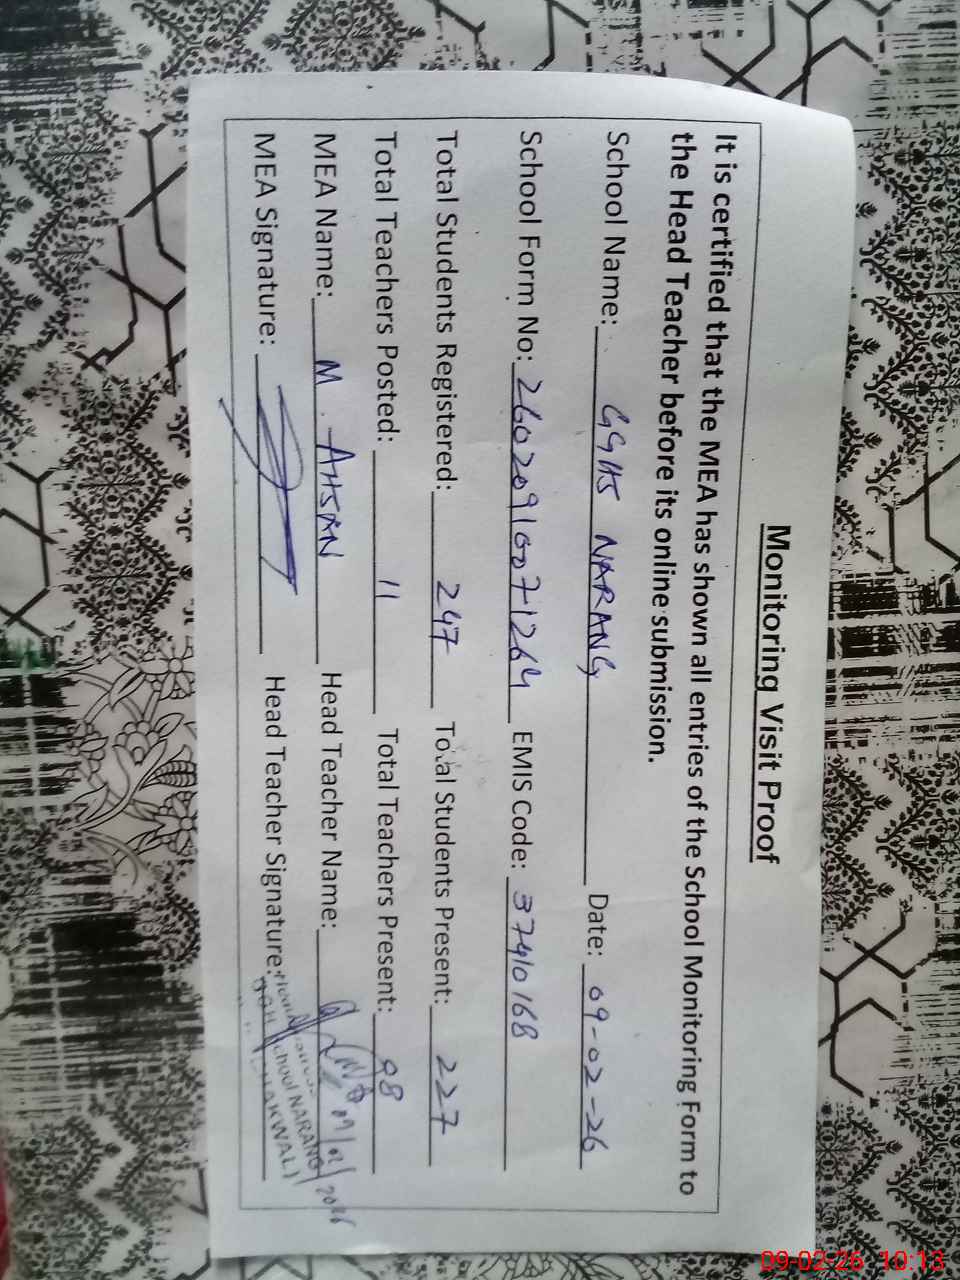 Monitoring Visit Proof
It is certified that the MEA has shown all entries of the School Monitoring Form to
the Head Teacher before its online submission.
School Name: GGHS NARANG Date: 09-02-26
School Form No: 260209160071264 EMIS Code: 37410168
Total Students Registered: 247 Total Students Present: 227
Total Teachers Posted: 11 Total Teachers Present: 08
MEA Name: M. AHSAN Head Teacher Name:
MEA Signature: Head Teacher Signature:
School NARANG
09-02-26 10:13